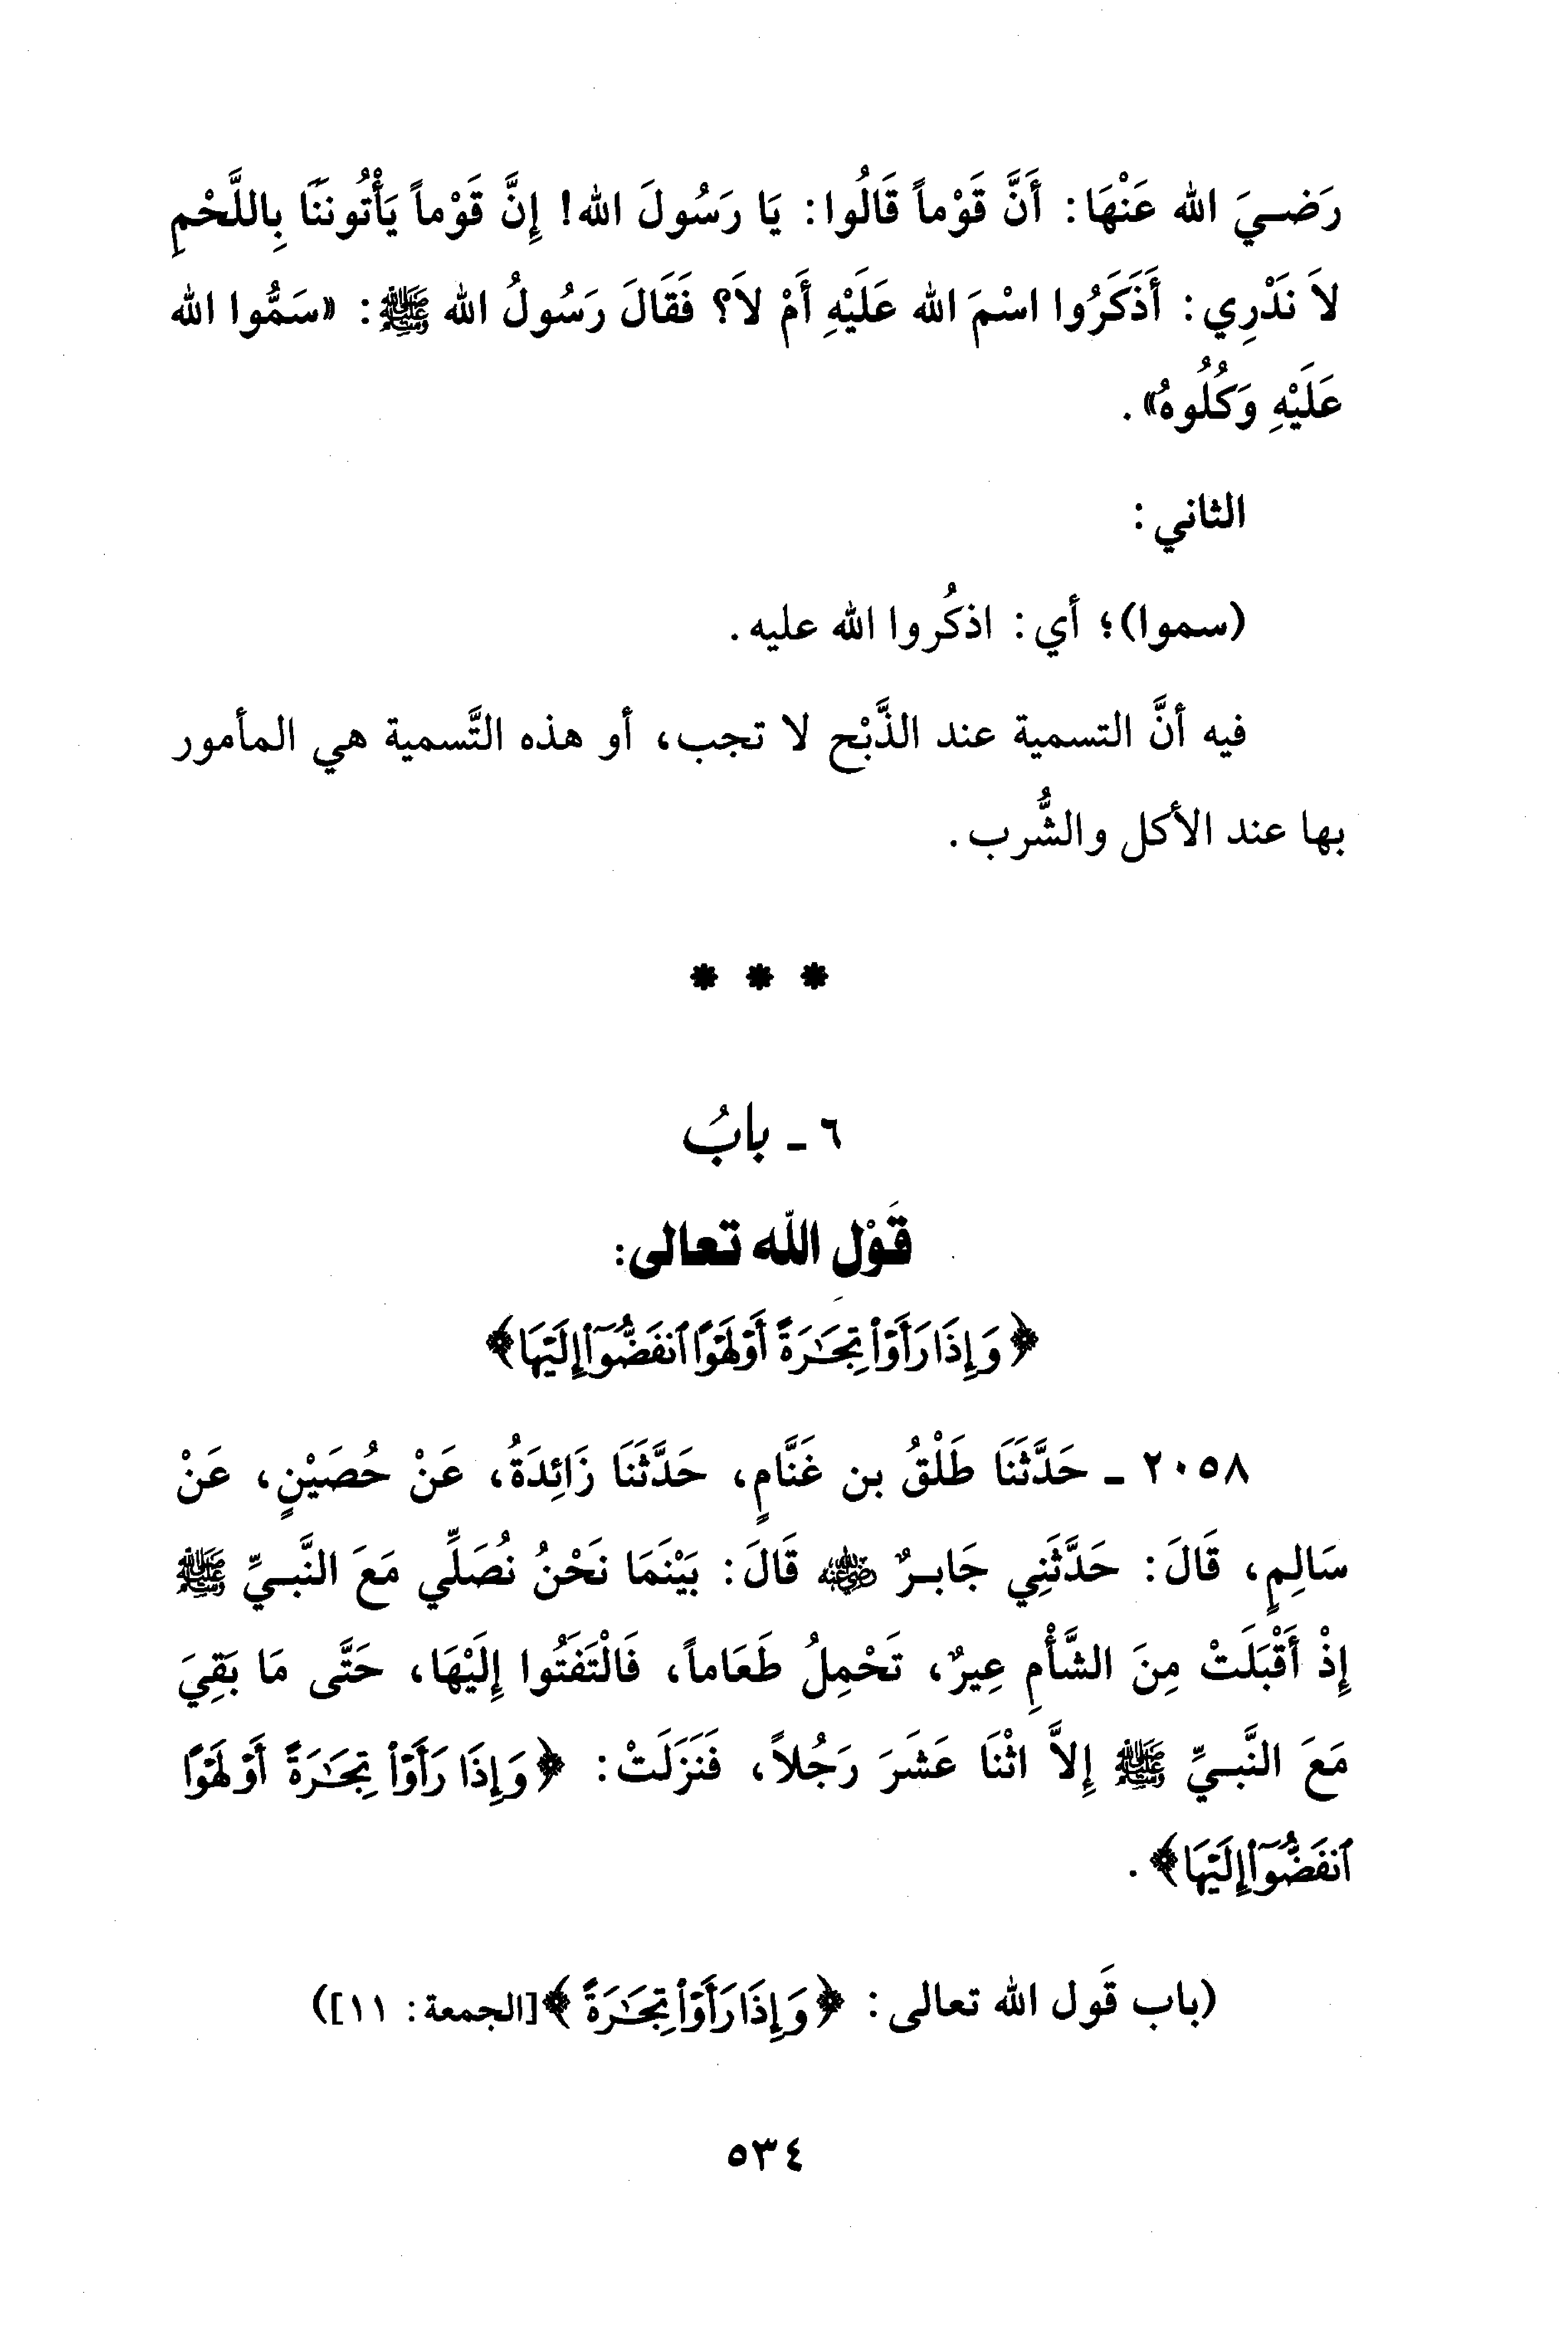 رَضِيَ الله عَنْهَا: أَنَّ قَوْماً قَالُوا: يَا رَسُولَ الله! إِنَّ قَوْماً يَأْتُونَنَا بِاللَّحْمِ
لاَ نَدْرِي: أَذَكَرُوا اسْمَ الله عَلَيْهِ أَمْ لاَ؟ فَقَالَ رَسُولُ الله ﷺ: «سَمُّوا الله
عَلَيْهِ وَكُلُوهُ».
الثاني:
(سموا)؛ أي: اذكُروا الله عليه.
فيه أنَّ التسمية عند الذَّبْح لا تجب، أو هذه التَّسمية هي المأمور
بها عند الأكل والشُّرب.
* * *
٦ - بابُ
قَوْل الله تعالى:
﴿وَإِذَا رَأَوْا۟ تِجَـٰرَةً أَوْ لَهْوًا ٱنفَضُّوٓا۟ إِلَيْهَا﴾
٢٠٥٨ - حَدَّثَنَا طَلْقُ بن غَنَّامٍ، حَدَّثَنَا زَائِدَةُ، عَنْ حُصَيْنٍ، عَنْ
سَالِمٍ، قَالَ: حَدَّثَنِي جَابِرٌ رضي الله عنه قَالَ: بَيْنَمَا نَحْنُ نُصَلِّي مَعَ النَّبِيِّ ﷺ
إِذْ أَقْبَلَتْ مِنَ الشَّأْمِ عِيرٌ، تَحْمِلُ طَعَاماً، فَالْتَفَتُوا إِلَيْهَا، حَتَّى مَا بَقِيَ
مَعَ النَّبِيِّ ﷺ إِلاَّ اثْنَا عَشَرَ رَجُلاً، فَنَزَلَتْ: ﴿وَإِذَا رَأَوْا۟ تِجَـٰرَةً أَوْ لَهْوًا
ٱنفَضُّوٓا۟ إِلَيْهَا﴾.
(باب قَول الله تعالى: ﴿وَإِذَا رَأَوْا۟ تِجَـٰرَةً﴾[الجمعة: ١١])
٥٣٤